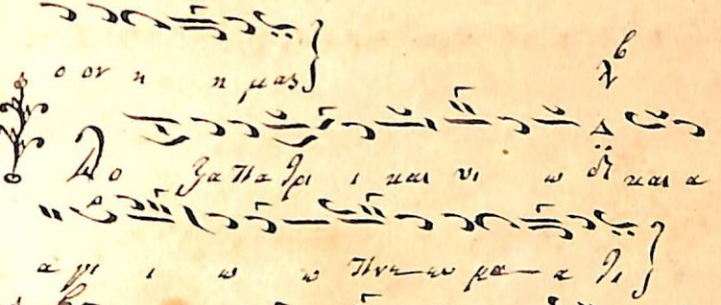 ο ον η η μας
Δο ξα πα τρι ι και υι ω και α
α γι ι ω ω πνευ ευ μα α τι